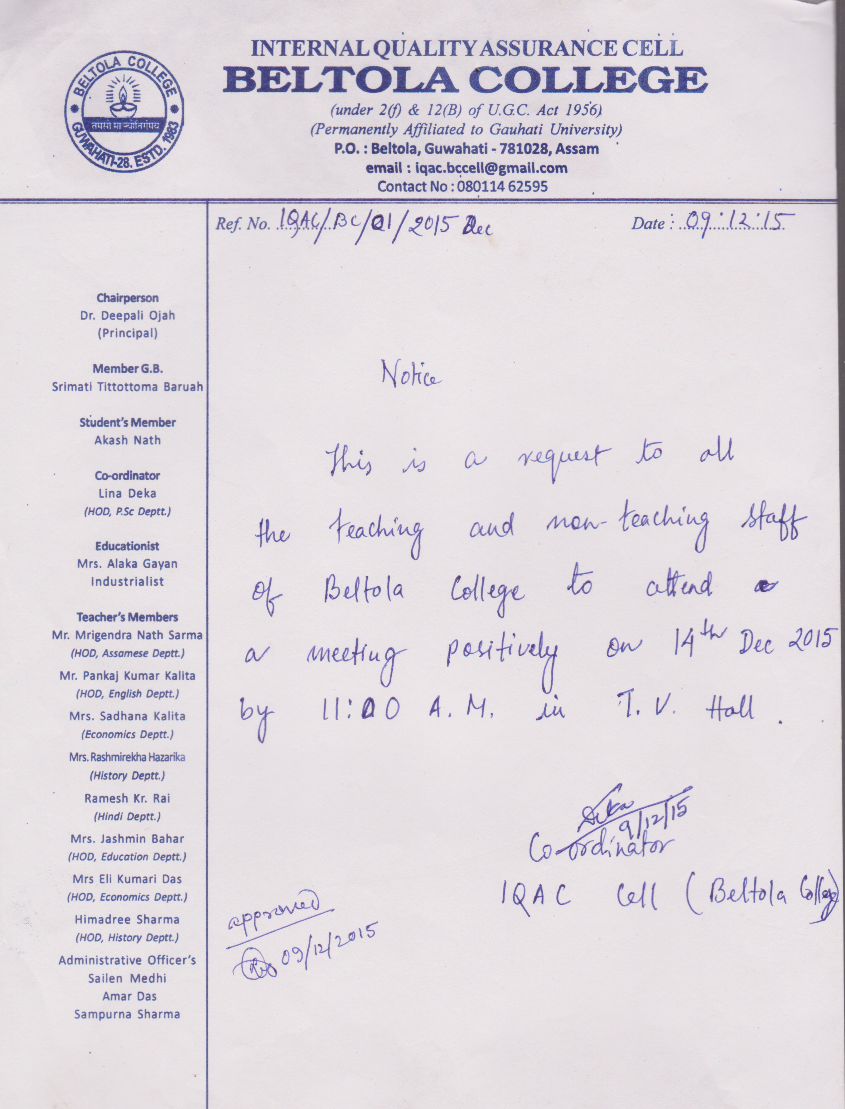 INTERNAL QUALITY ASSURANCE CELL
BELTOLA COLLEGE
(under 2(f) & 12(B) of U.G.C. Act 1956)
(Permanently Affiliated to Gauhati University)
P.O. : Beltola, Guwahati - 781028, Assam
email : iqac.bccell@gmail.com
Contact No : 080114 62595
BELTOLA COLLEGE
GUWAHATI-28. ESTD. 1983
Ref. No. IQAC/BC/01/2015 Dec
Date : 09:12:15
Chairperson
Dr. Deepali Ojah
(Principal)
Member G.B.
Srimati Tittottoma Baruah
Student's Member
Akash Nath
Co-ordinator
Lina Deka
(HOD, P.Sc Deptt.)
Educationist
Mrs. Alaka Gayan
Industrialist
Teacher's Members
Mr. Mrigendra Nath Sarma
(HOD, Assamese Deptt.)
Mr. Pankaj Kumar Kalita
(HOD, English Deptt.)
Mrs. Sadhana Kalita
(Economics Deptt.)
Mrs. Rashmirekha Hazarika
(History Deptt.)
Ramesh Kr. Rai
(Hindi Deptt.)
Mrs. Jashmin Bahar
(HOD, Education Deptt.)
Mrs Eli Kumari Das
(HOD, Economics Deptt.)
Himadree Sharma
(HOD, History Deptt.)
Administrative Officer's
Sailen Medhi
Amar Das
Sampurna Sharma
Notice
This is a request to all
the teaching and non-teaching staff
of Beltola College to attend
a meeting positively on 14th Dec 2015
by 11:00 A.M. in T.V. Hall.
9/12/15
Co-ordinator
IQAC Cell (Beltola College)
approved
09/12/2015